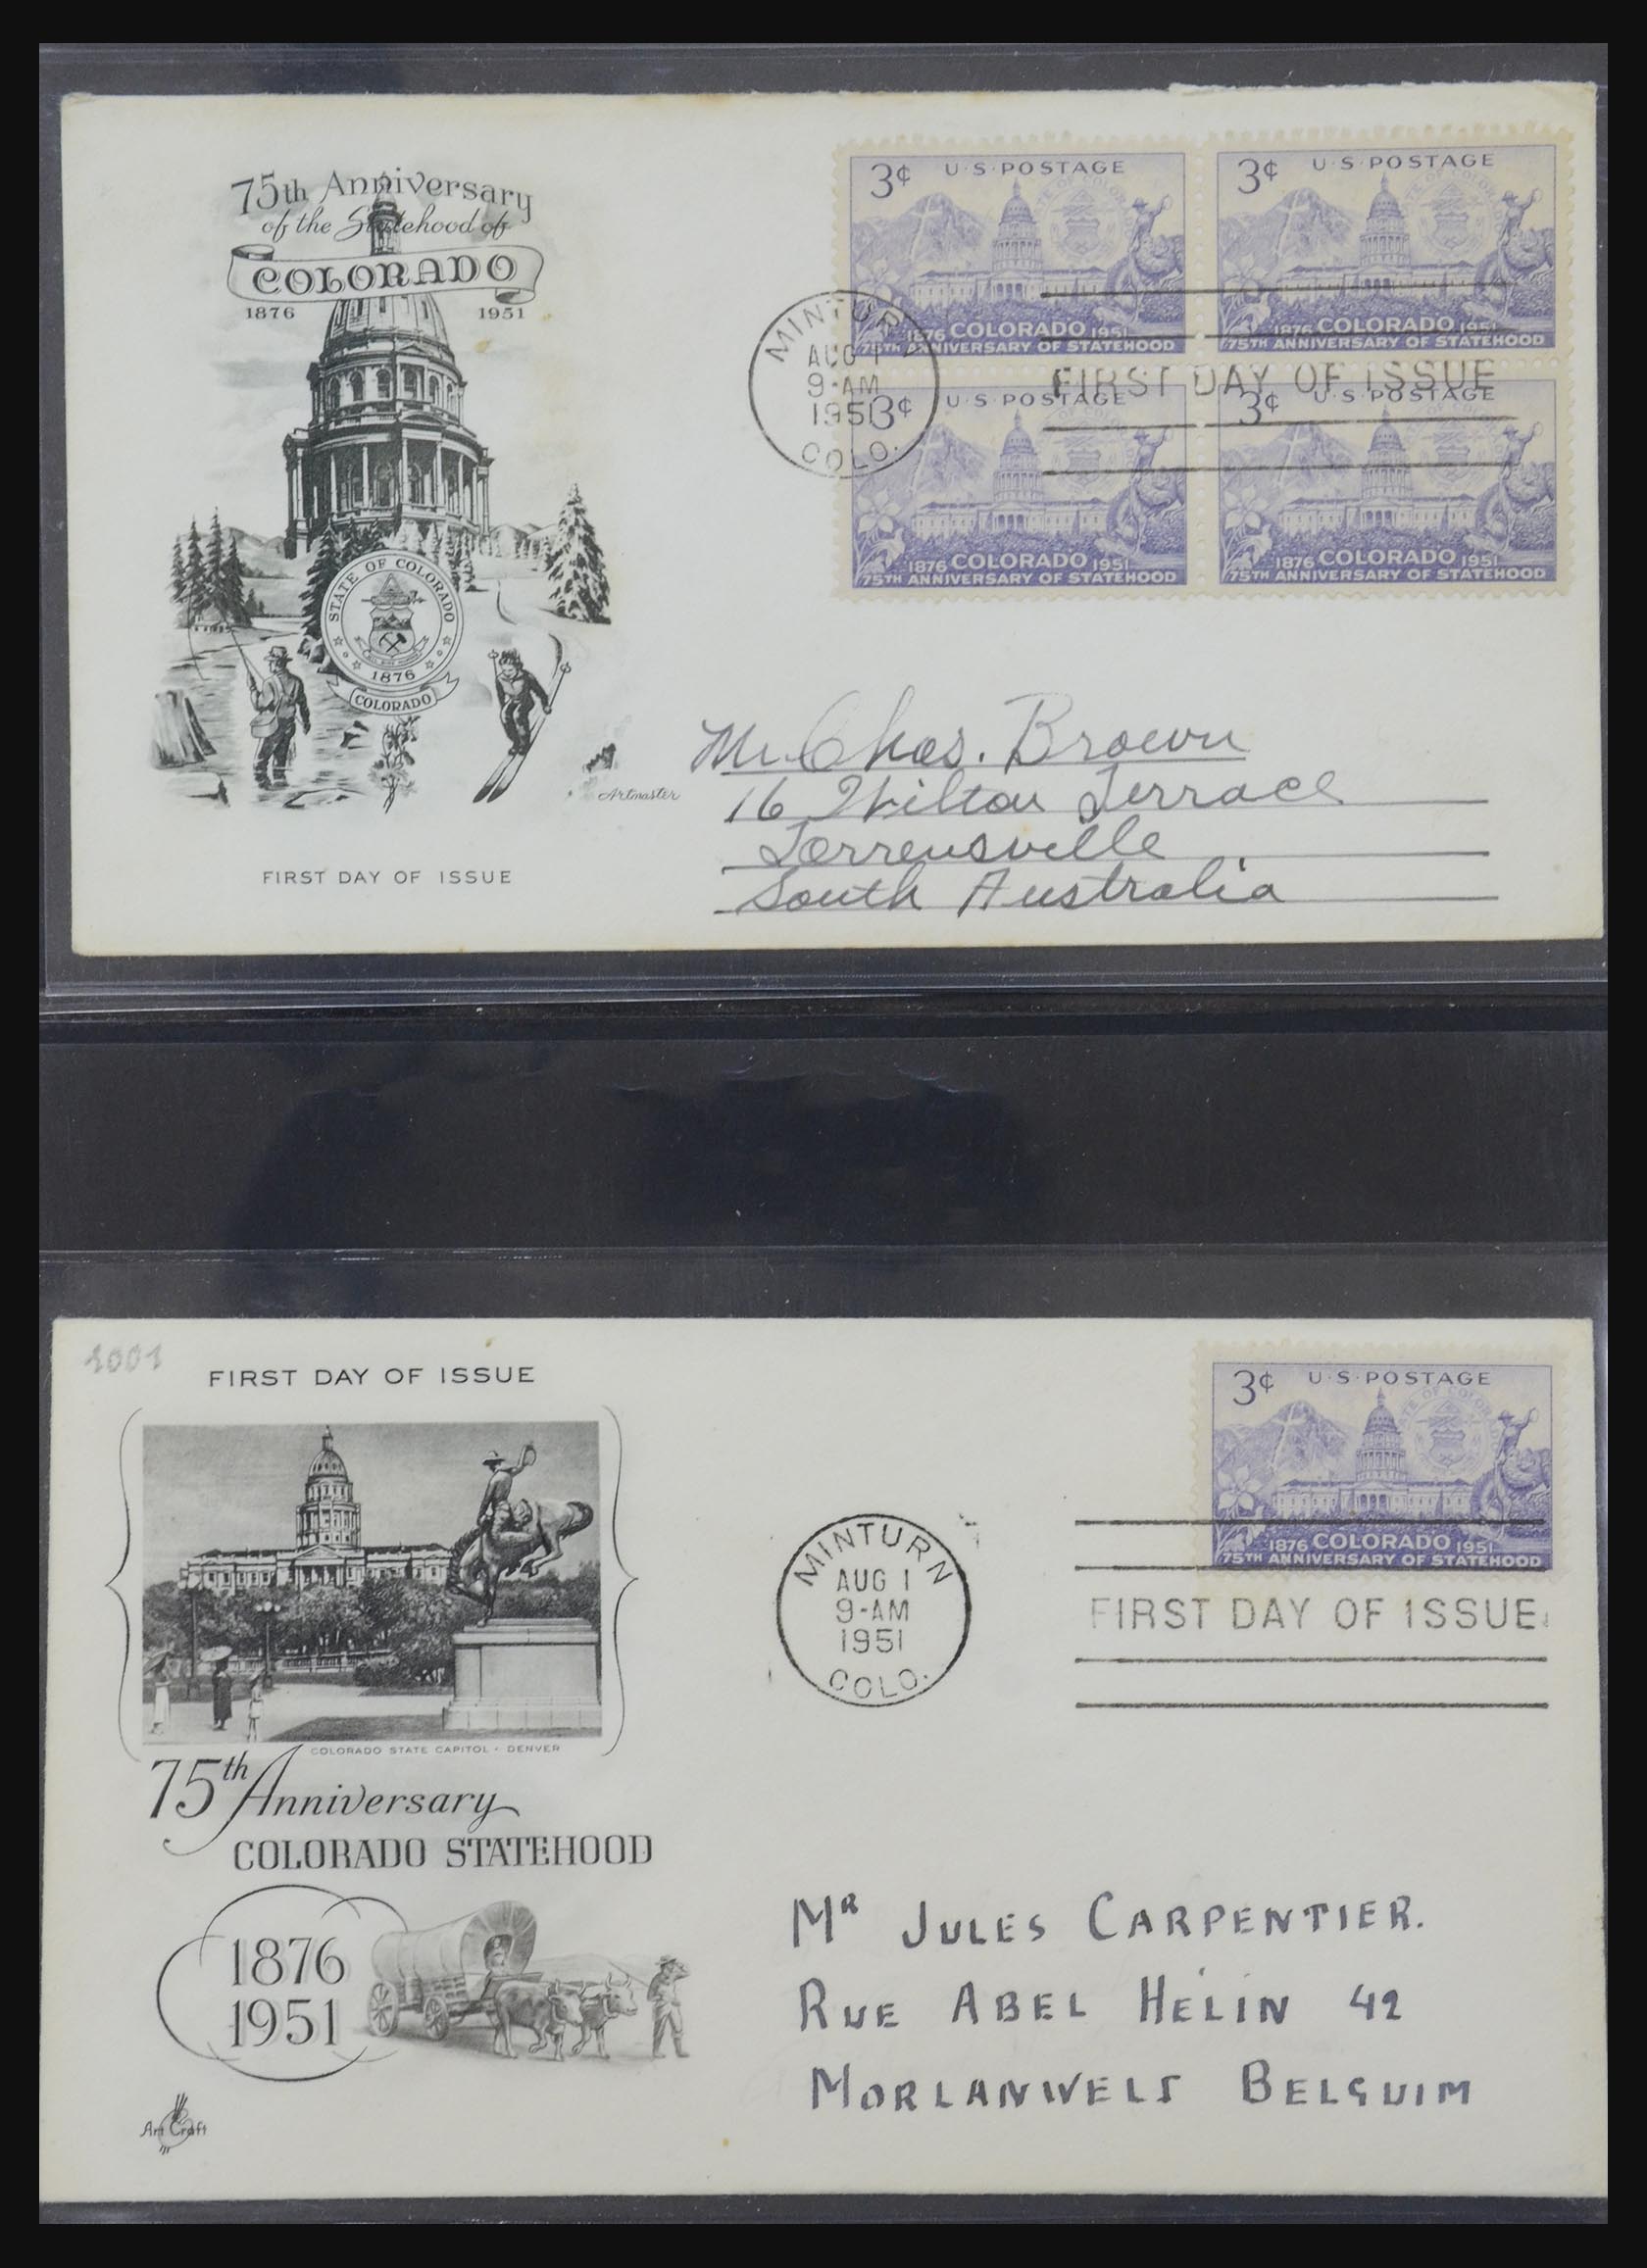 75th Anniversary
of the Statehood of
COLORADO
1876 1951
STATE OF COLORADO
1876
COLORADO
Artmaster
FIRST DAY OF ISSUE
3¢ U·S·POSTAGE
1876 COLORADO 1951
75TH ANNIVERSARY OF STATEHOOD
3¢ U·S·POSTAGE
1876 COLORADO 1951
75TH ANNIVERSARY OF STATEHOOD
3¢ U·S·POSTAGE
1876 COLORADO 1951
75TH ANNIVERSARY OF STATEHOOD
3¢ U·S·POSTAGE
1876 COLORADO 1951
75TH ANNIVERSARY OF STATEHOOD
MINTURN
AUG 1
9-AM
1951
COLO.
FIRST DAY OF ISSUE
Mr. Chas. Brown
16 Wilton Terrace
Torrensville
South Australia
1001
FIRST DAY OF ISSUE
COLORADO STATE CAPITOL - DENVER
75th Anniversary
COLORADO STATEHOOD
1876
1951
Art Craft
3¢ U·S·POSTAGE
1876 COLORADO 1951
75TH ANNIVERSARY OF STATEHOOD
MINTURN
AUG 1
9-AM
1951
COLO.
FIRST DAY OF ISSUE
MR JULES CARPENTIER.
RUE ABEL HELIN 42
MORLANWELS BELGUIM